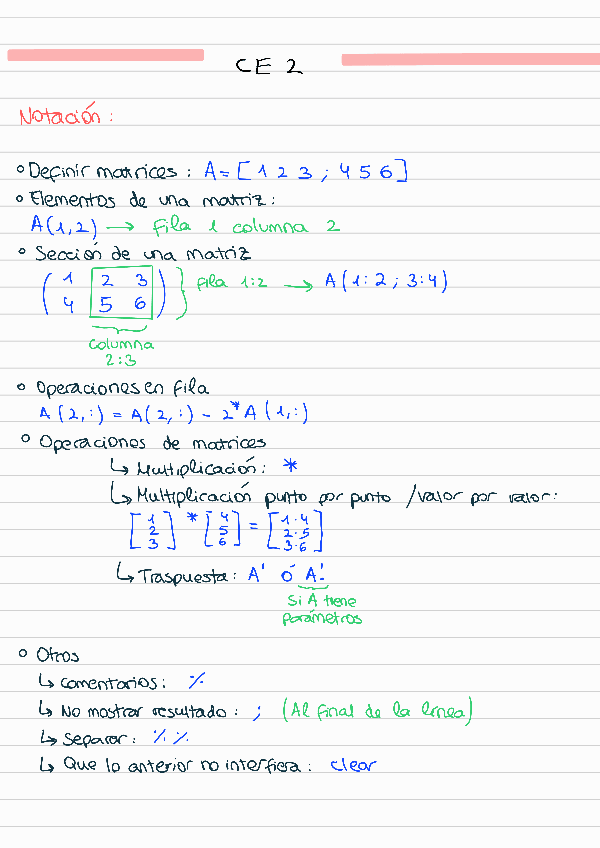 CE 2
Notación:
° Definir matrices: A = [1 2 3 ; 4 5 6]
° Elementos de una matriz:
A(1,2) → fila 1 columna 2
° Sección de una matriz
( 1 2 3 ) } fila 1:2 → A(1:2 ; 3:4)
( 4 5 6 )
columna
2:3
° Operaciones en fila
A(2,:) = A(2,:) - 2*A(1,:)
° Operaciones de matrices
↳ Multiplicación: *
↳ Multiplicación punto por punto / valor por valor:
[1] * [4] = [1·4]
[2] [5] [2·5]
[3] [6] [3·6]
↳ Traspuesta: A' ó A.'
Si A tiene
parámetros
° Otros
↳ Comentarios: %
↳ No mostrar resultado: ; (Al final de la línea)
↳ Separar: %%
↳ Que lo anterior no interfiera: clear